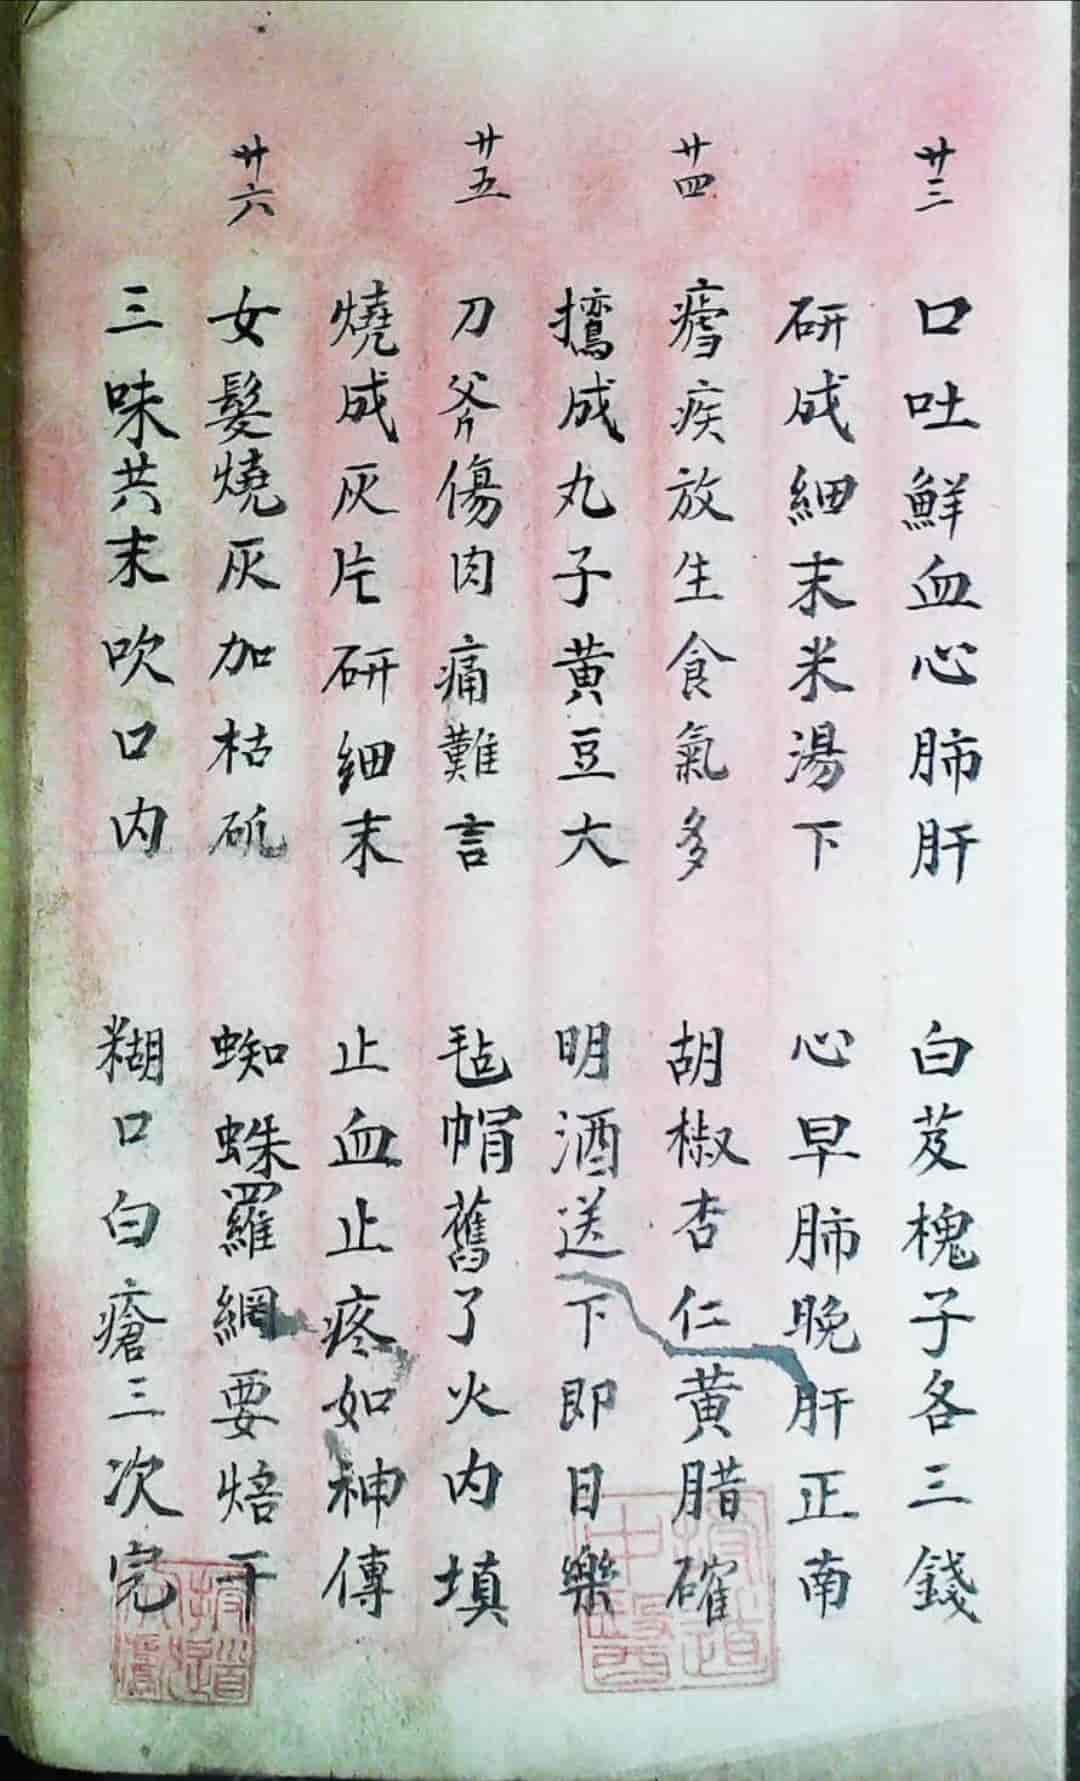 廿三
口吐鮮血心肺肝 白芨槐子各三錢
研成細末米湯下 心早肺晚肝正南
廿四
瘧疾放生食氣多 胡椒杏仁黃腊確
成丸子黃豆大 明酒送下即日樂
廿五
刀斧傷肉痛難言 毡帽舊了火内填
燒成灰片研細末 止血止疼如神傳
廿六
女髮燒灰加枯矾 蜘蛛羅網要焙干
三味共末吹口内 糊口白瘡三次完